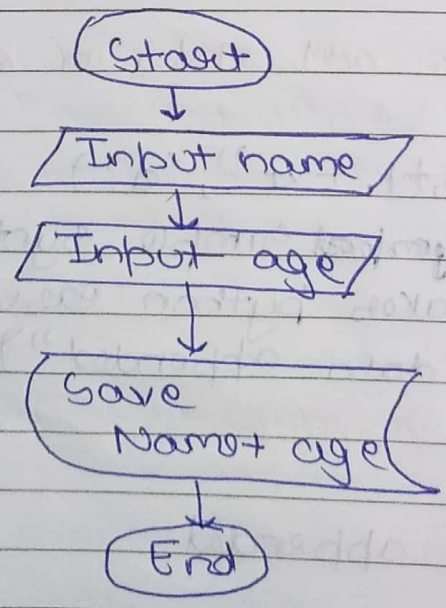 Start
Input name
Input age
Save
Name+ age
End